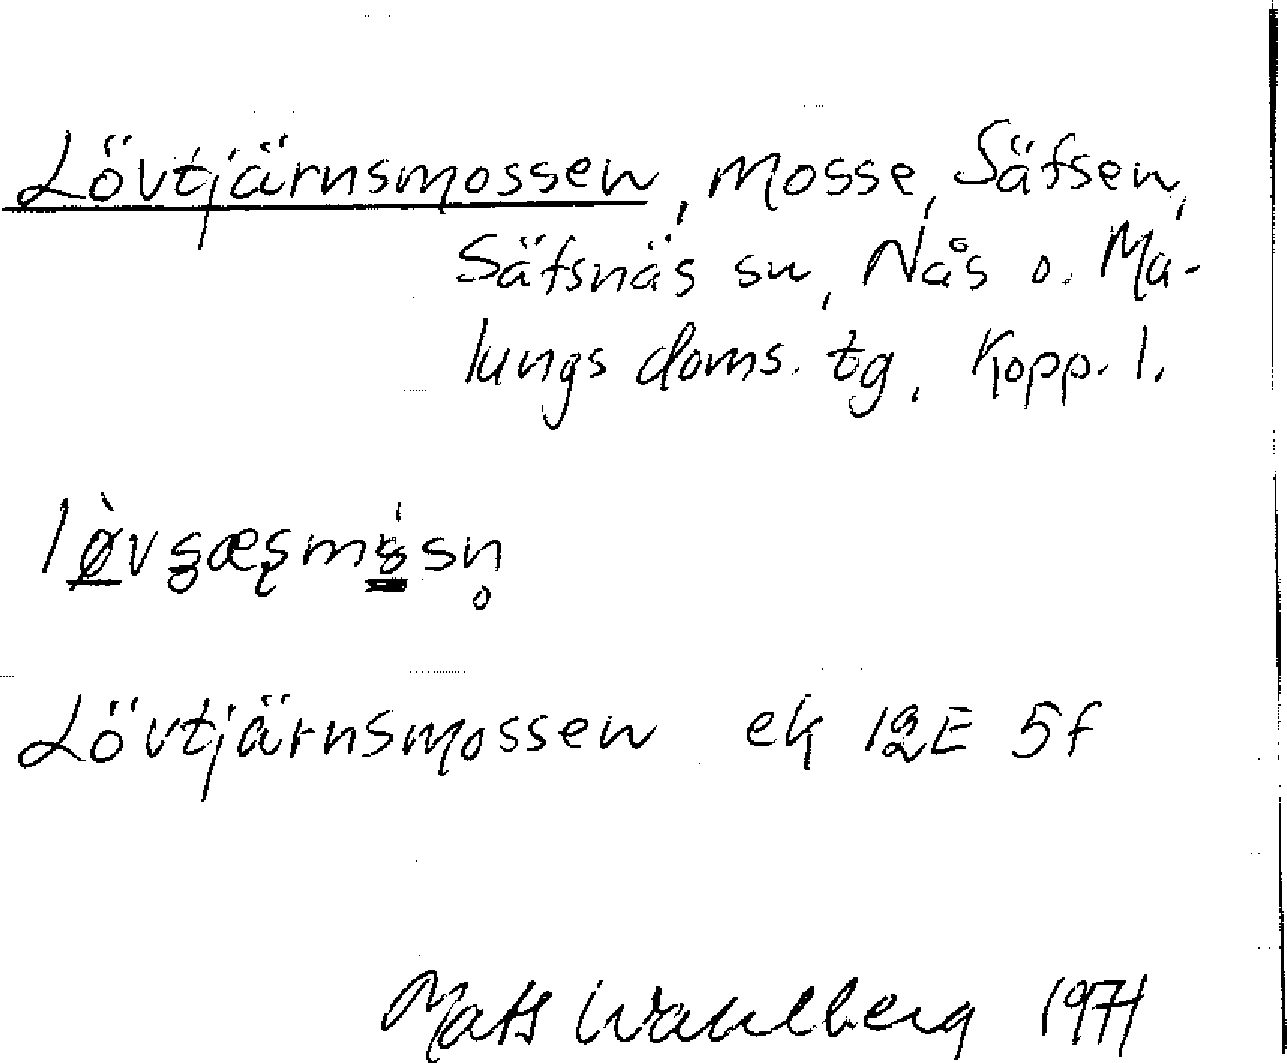 Lövtjärnsmossen, mosse, Säfsen,
Säfsnäs sn, Nås o. Ma-
lungs doms. tg, Kopp. l.
Lövtjärnsmossen ek 12E 5f
Mats Wahlberg 1971